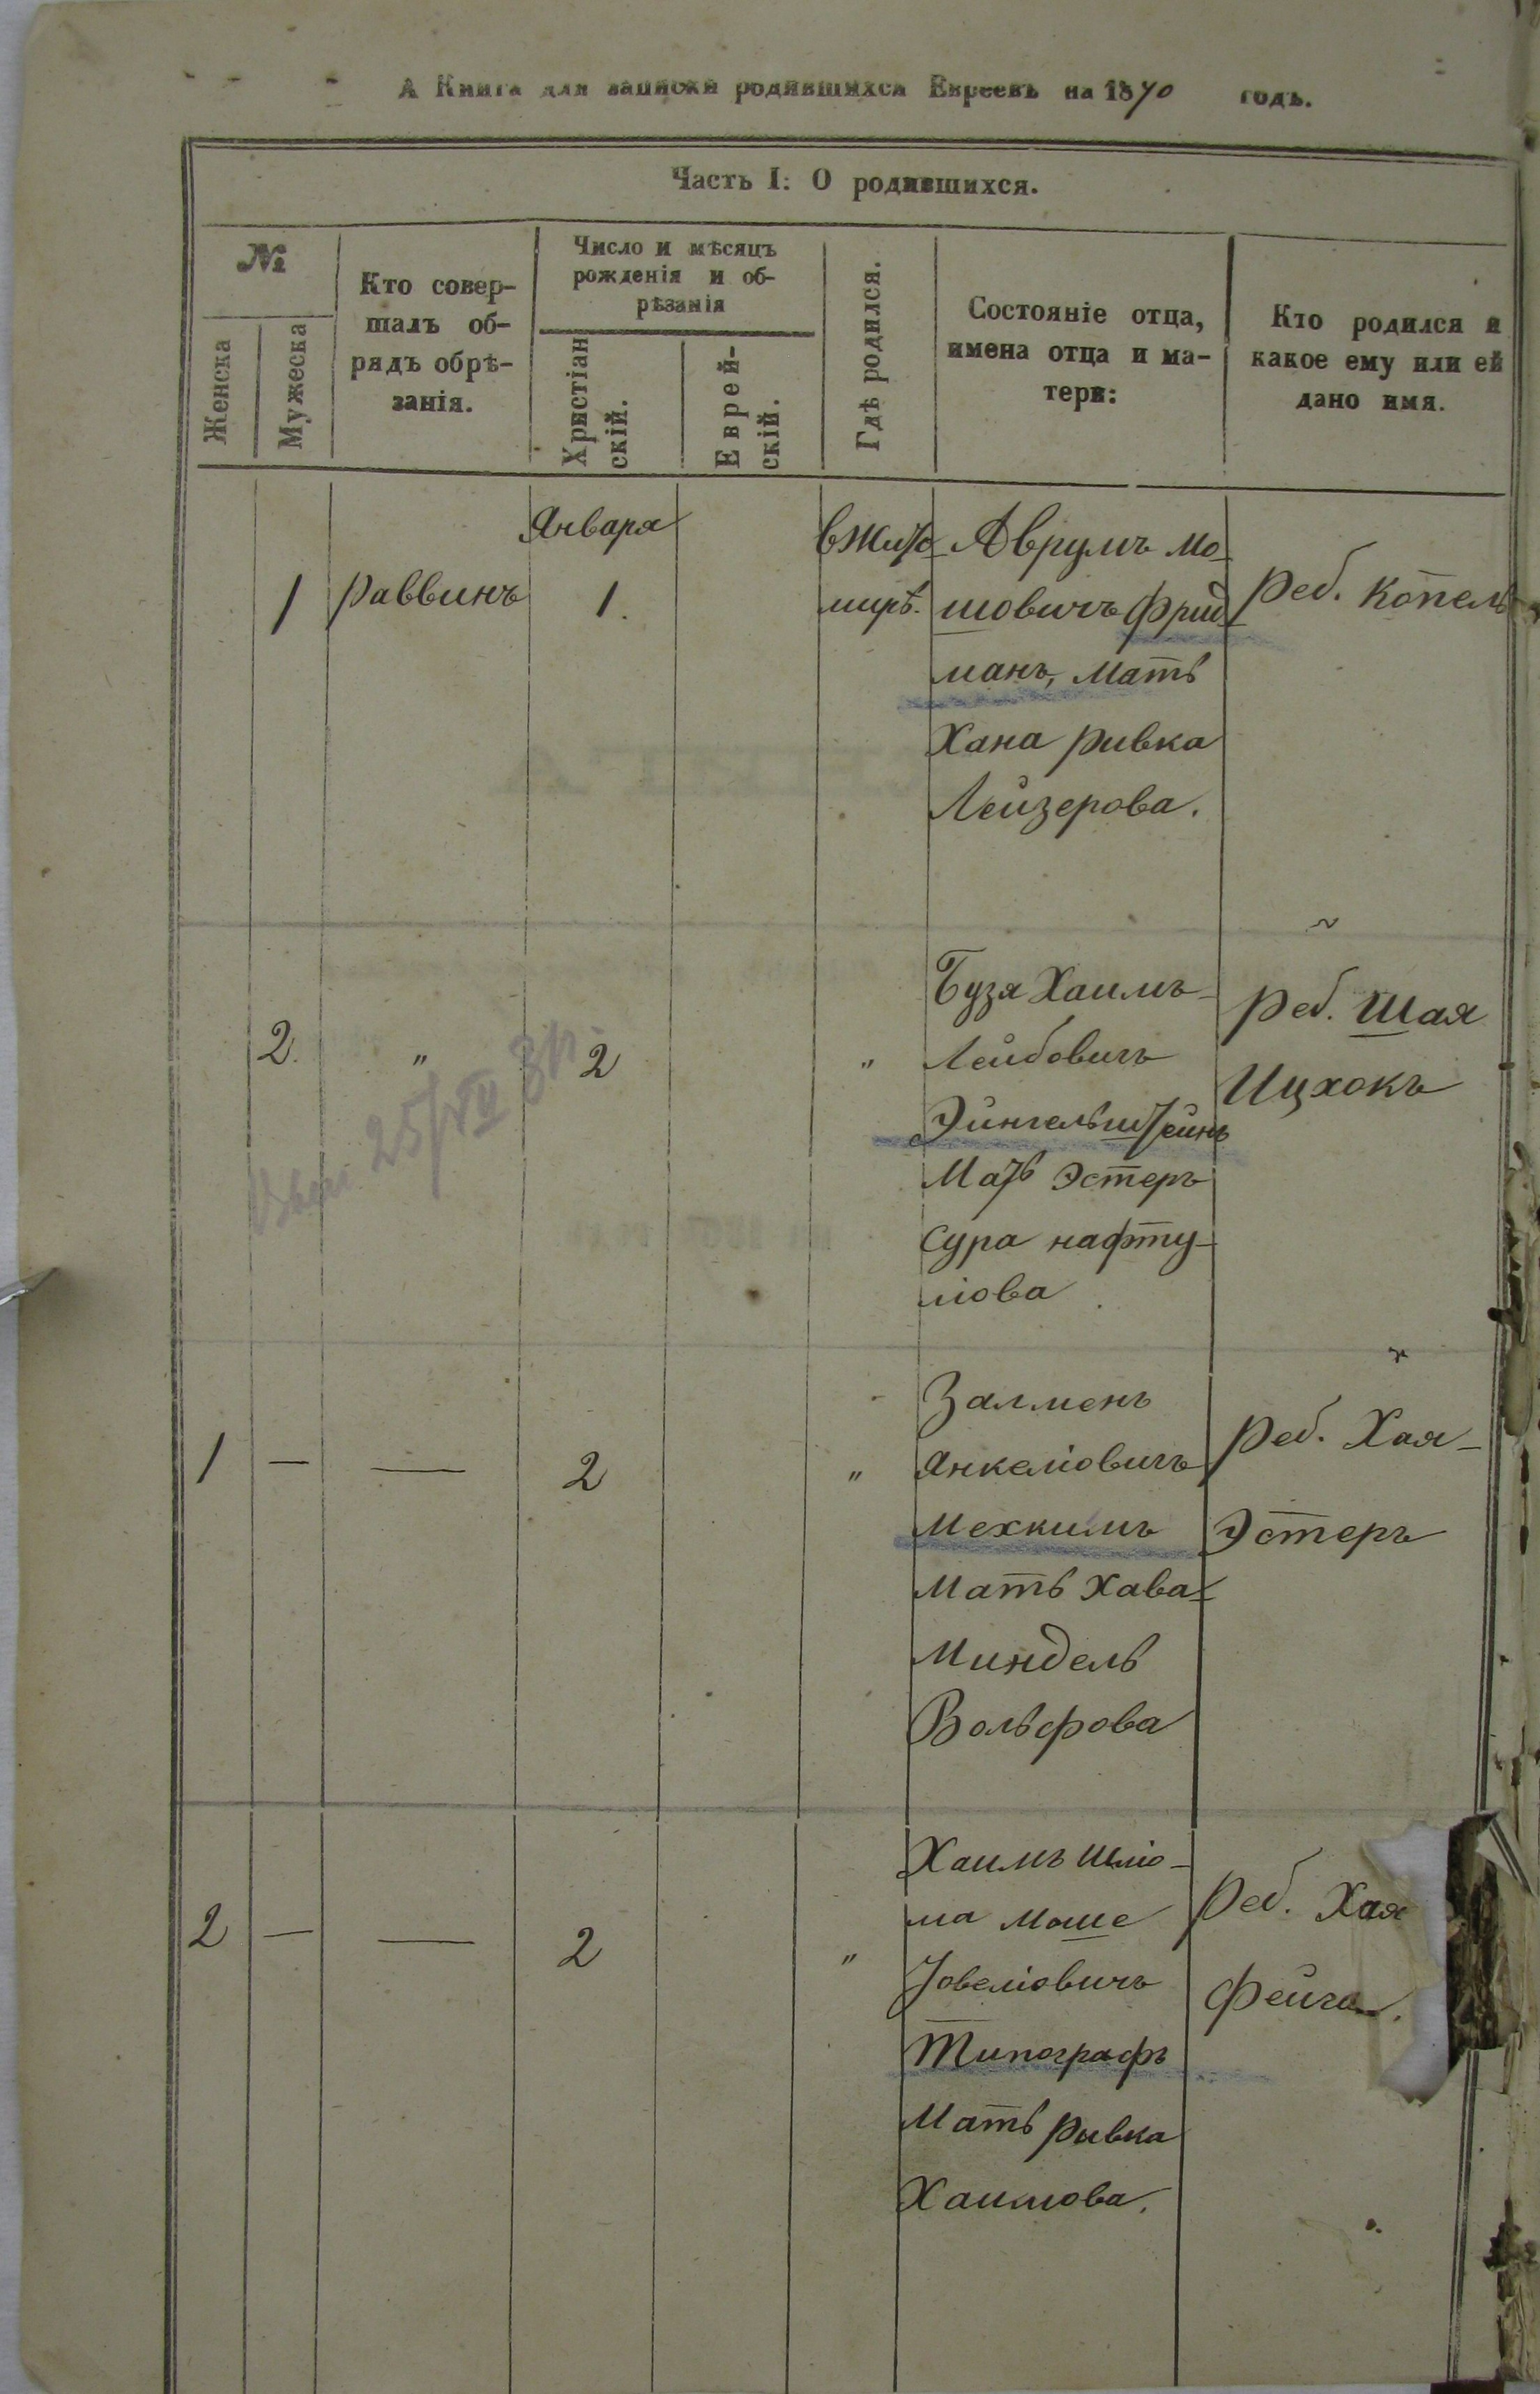 А Книга для записки родившихся Евреевъ на 1870 годъ.
Часть I: О родившихся.
№
Женска
Мужеска
Кто совер-
шалъ об-
рядъ обрѣ-
занія.
Число и мѣсяцъ
рожденія и об-
рѣзанія
Христіан
скій.
Еврей-
скій.
Гдѣ родился.
Состояніе отца,
имена отца и ма-
тери:
Кто родился и
какое ему или ей
дано имя.
1
Раввинъ
Января
1.
вЖито
мирѣ.
Аврумъ Мо-
шовичъ Фрид
манъ, Мать
Хана Ривка
Лейзерова.
Реб. Копель
2.
"
2
"
Бузя Хаимъ-
Лейбовичъ
Эйнгельштейнъ
Мать Эстеръ
Сура Нафту-
лiова
Реб. Шая
Ицхокъ
25/VII
1
—
—
2
"
Залменъ
Янкелiовичъ
Мехкимъ
Мать Хава-
Миндель
Вольфова
Реб. Хая-
Эстеръ
2
—
—
2
"
Хаимъ Шлiо-
ма Моше
Іовелiовичъ
Типографъ
Мать Ривка
Хаимова.
Реб. Хая
Фейга.